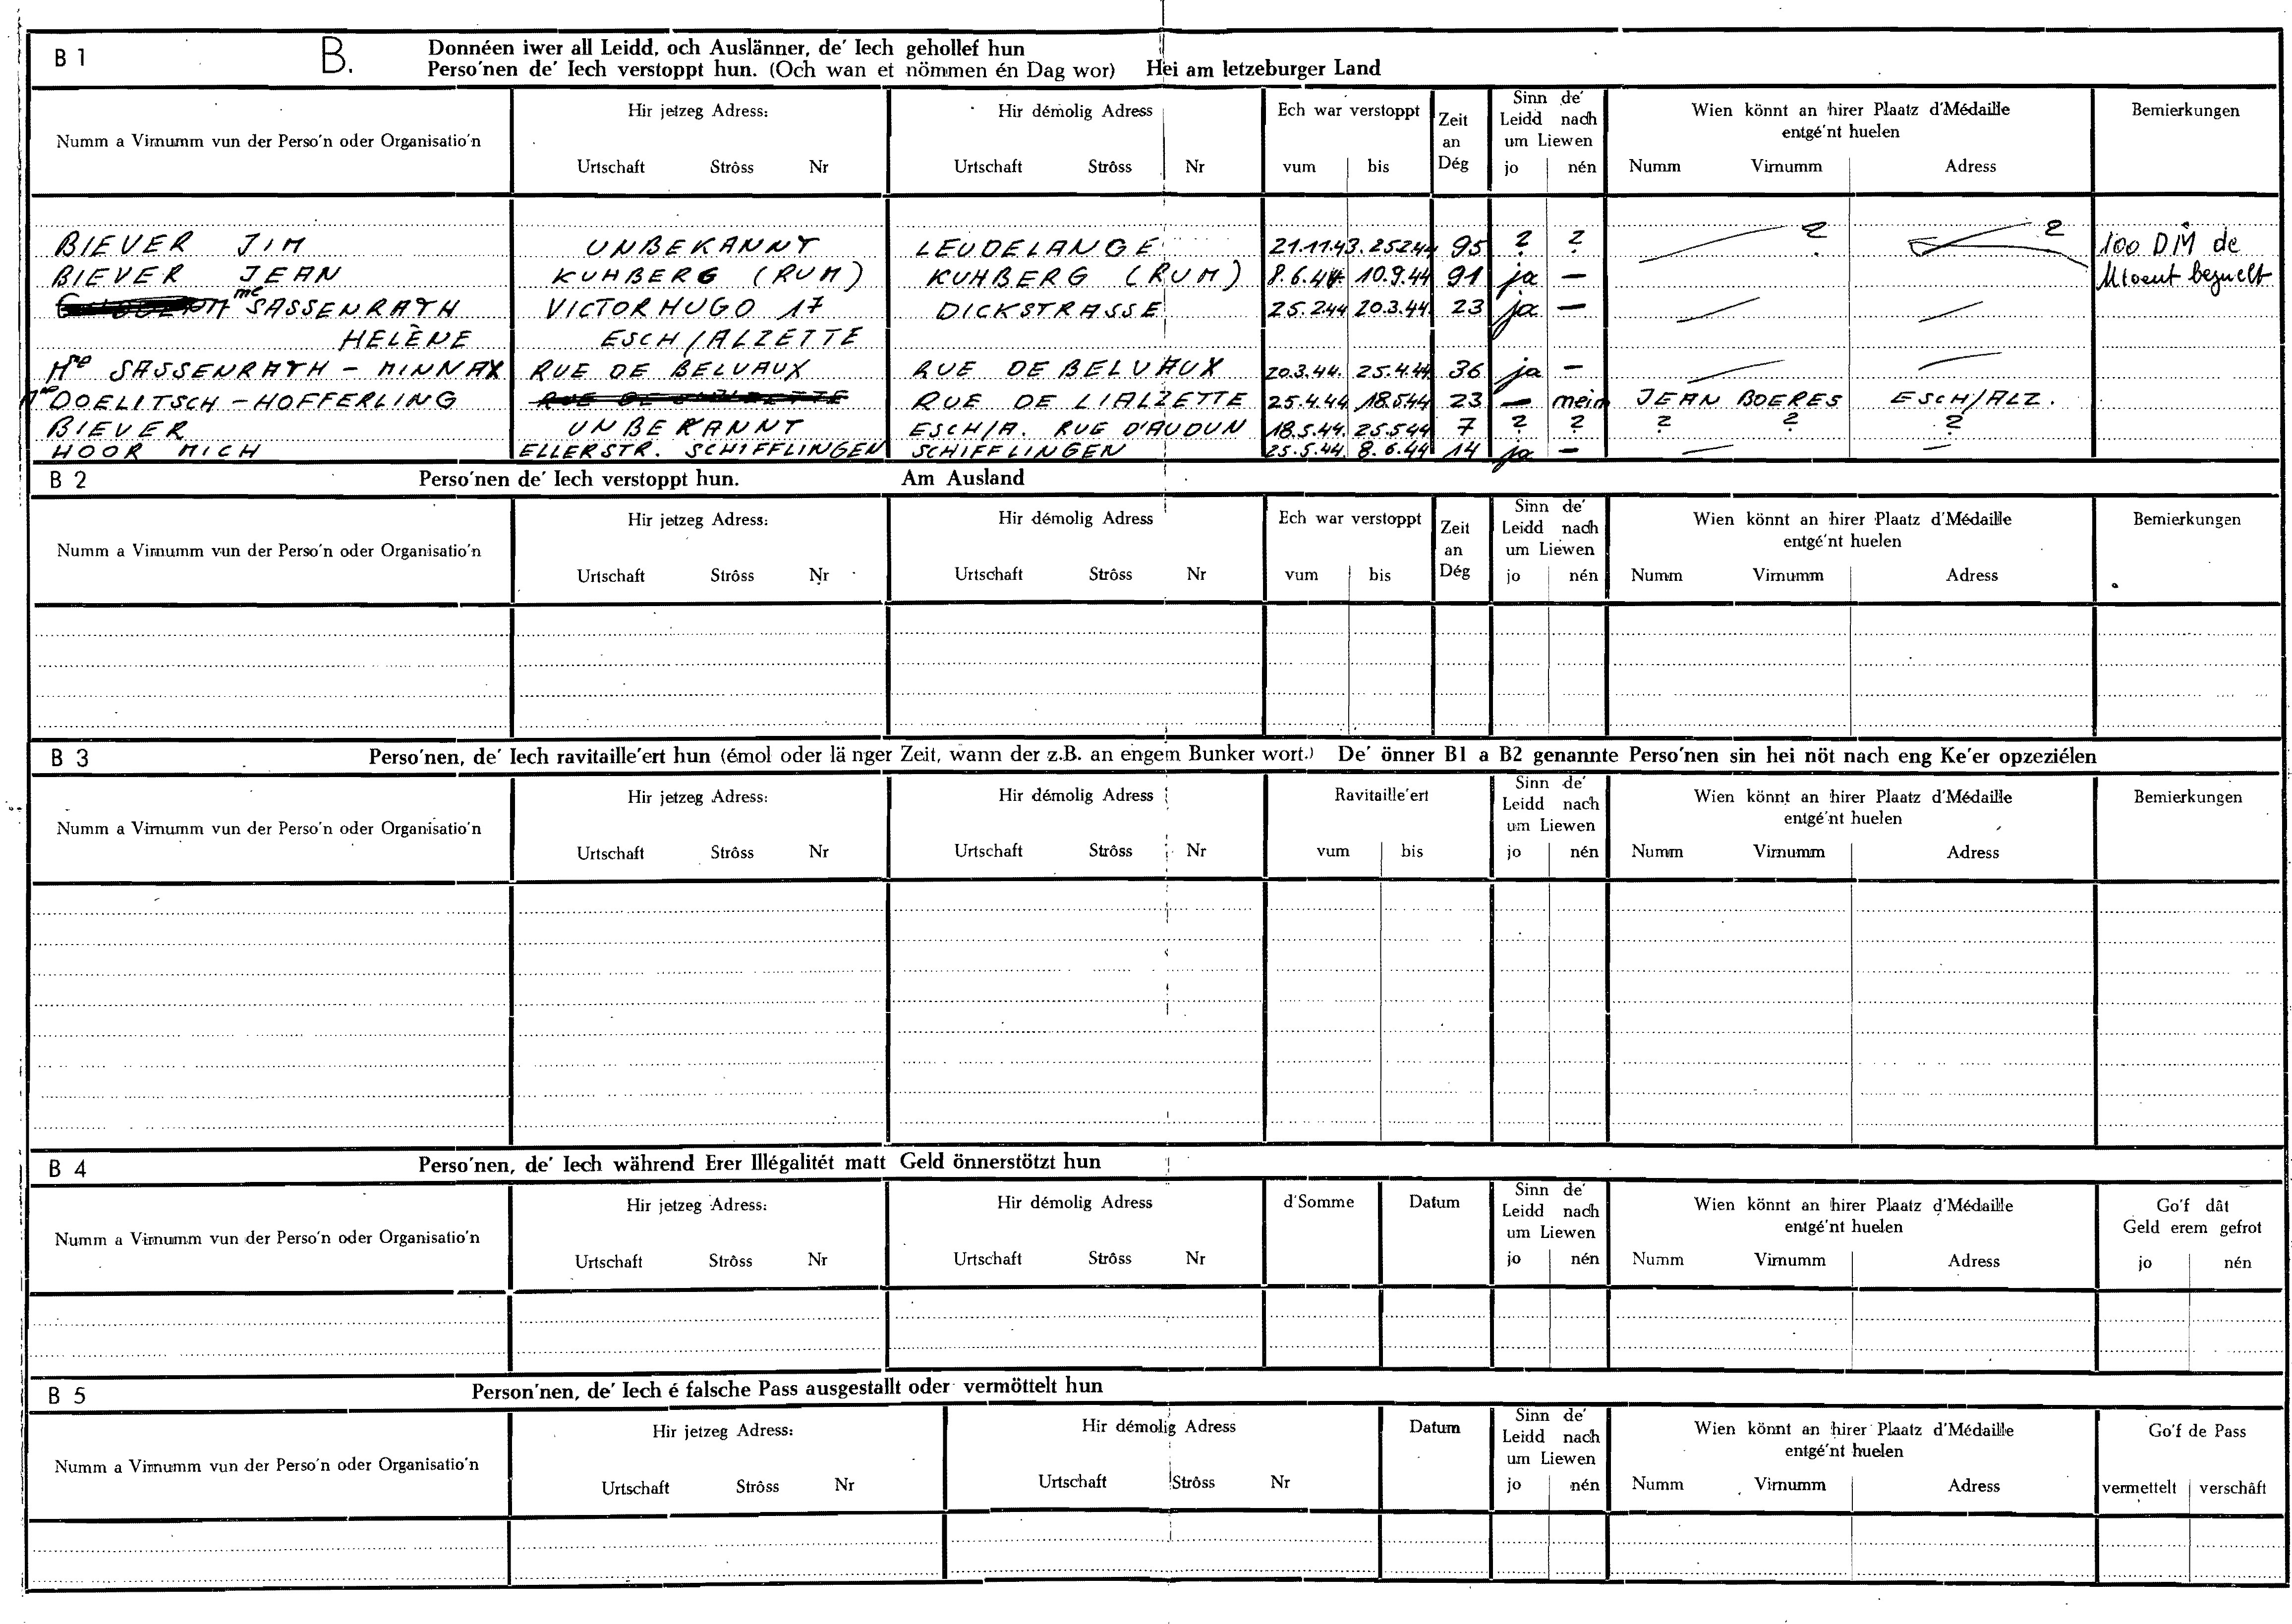 B 1 B. Donnéen iwer all Leidd, och Auslänner, de' Iech gehollef hun
Perso'nen de' Iech verstoppt hun. (Och wan et nömmen én Dag wor) Hei am letzeburger Land
Numm a Virnumm vun der Perso'n oder Organisatio'n
Hir jetzeg Adress:
Urtschaft Strôss Nr
Hir démolig Adress
Urtschaft Strôss Nr
Ech war verstoppt
vum bis
Zeit
an
Dég
Sinn de'
Leidd nach
um Liewen
jo nén
Wien könnt an hirer Plaatz d'Médaille
entgé'nt huelen
Numm Virnumm Adress
Bemierkungen
BIEVER JIM UNBEKANNT LEUDELANGE 21.11.43. 25244 95 ? ? ? ? 100 DM de
BIEVER JEAN KUHBERG (RUM) KUHBERG (RUM) 8.6.44. 10.9.44 91 ja — bezuelt
me SASSENRATH VICTOR HUGO 17 DICKSTRASSE 25.244 20.3.44. 23 ja —
HELÈNE ESCH/ALZETTE
Me SASSENRATH - MINNAX RUE DE BELVAUX RUE DE BELVAUX 20.3.44. 25.4.44 36 ja —
Me DOELITSCH - HOFFERLING RUE DE L'ALZETTE 25.4.44 18.544 23 — nein JEAN BOERES ESCH/ALZ.
BIEVER UNBEKANNT ESCH/A. RUE D'AUDUN 18.5.44. 25.544 7 ? ? ? ? ?
HOOR MICH ELLERSTR. SCHIFFLINGEN SCHIFFLINGEN 25.5.44 8.6.44 14 ja — — —
B 2 Perso'nen de' Iech verstoppt hun. Am Ausland
Numm a Virnumm vun der Perso'n oder Organisatio'n
Hir jetzeg Adress:
Urtschaft Strôss Nr
Hir démolig Adress
Urtschaft Strôss Nr
Ech war verstoppt
vum bis
Zeit
an
Dég
Sinn de'
Leidd nach
um Liewen
jo nén
Wien könnt an hirer Plaatz d'Médaille
entgé'nt huelen
Numm Virnumm Adress
Bemierkungen
B 3 Perso'nen, de' Iech ravitaille'ert hun (émol oder lä nger Zeit, wann der z.B. an engem Bunker wort.) De' önner B1 a B2 genannte Perso'nen sin hei nöt nach eng Ke'er opzeziélen
Numm a Virnumm vun der Perso'n oder Organisatio'n
Hir jetzeg Adress:
Urtschaft Strôss Nr
Hir démolig Adress
Urtschaft Strôss Nr
Ravitaille'ert
vum bis
Sinn de'
Leidd nach
um Liewen
jo nén
Wien könnt an hirer Plaatz d'Médaille
entgé'nt huelen
Numm Virnumm Adress
Bemierkungen
B 4 Perso'nen, de' Iech während Erer Illégalitét matt Geld önnerstötzt hun
Numm a Virnumm vun der Perso'n oder Organisatio'n
Hir jetzeg Adress:
Urtschaft Strôss Nr
Hir démolig Adress
Urtschaft Strôss Nr
d'Somme
Datum
Sinn de'
Leidd nach
um Liewen
jo nén
Wien könnt an hirer Plaatz d'Médaille
entgé'nt huelen
Numm Virnumm Adress
Go'f dât
Geld erem gefrot
jo nén
B 5 Person'nen, de' Iech é falsche Pass ausgestallt oder vermöttelt hun
Numm a Virnumm vun der Perso'n oder Organisatio'n
Hir jetzeg Adress:
Urtschaft Strôss Nr
Hir démolig Adress
Urtschaft Strôss Nr
Datum
Sinn de'
Leidd nach
um Liewen
jo nén
Wien könnt an hirer Plaatz d'Médaille
entgé'nt huelen
Numm Virnumm Adress
Go'f de Pass
vermettelt verschâft